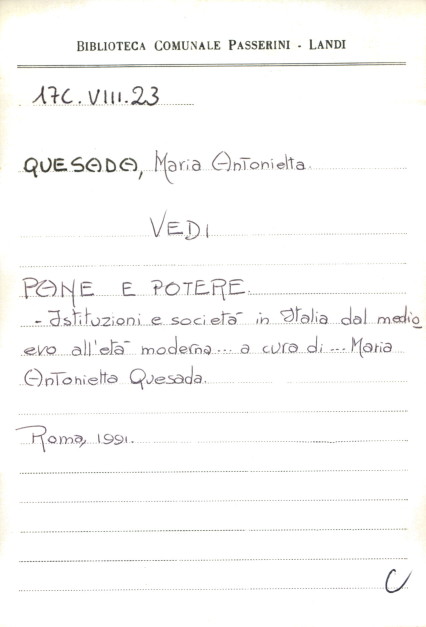 BIBLIOTECA COMUNALE PASSERINI - LANDI
17C.VIII.23
QUESADA, Maria Antonietta.
VEDI
PANE E POTERE.
- Istituzioni e società in Italia dal medio
evo all'età moderna... a cura di ... Maria
Antonietta Quesada.
Roma, 1991.
C